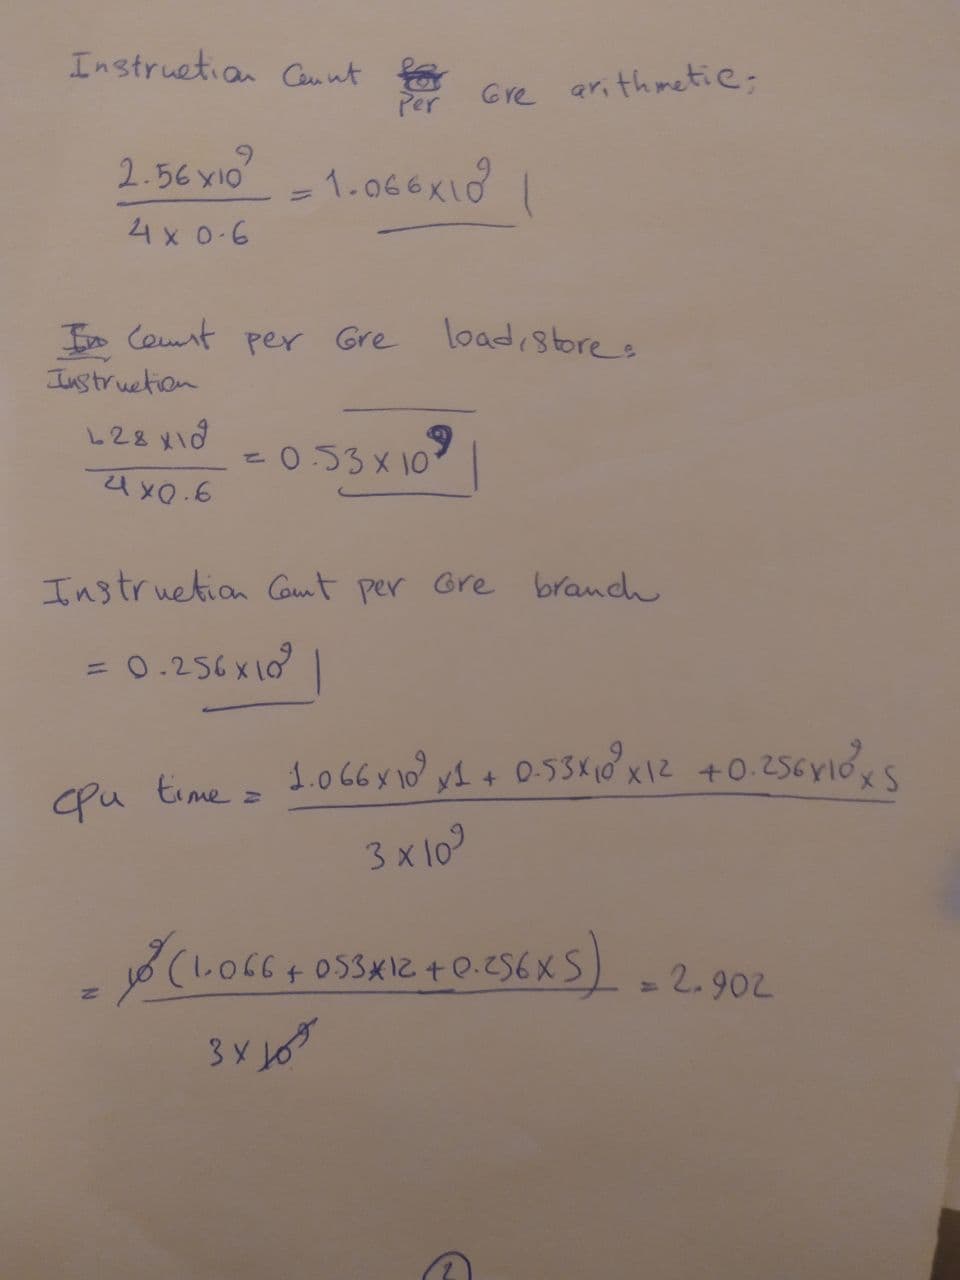 Instruction Count per Core arithmetic:
2.56x10^9 / 4 x 0.6 = 1.066x10^9
Count per Core load,store:
Instruction
1.28 x10^9 / 4 x0.6 = 0.53 x 10^9
Instruction Count per Core branch
= 0.256x10^9
cpu time = 1.066x10^9 x1 + 0.53x10^9 x12 +0.256x10^9 x5 / 3 x10^9
= 10^9 (1.066 + 053x12 + 0.256x5) / 3 x 10^9 = 2.902
2